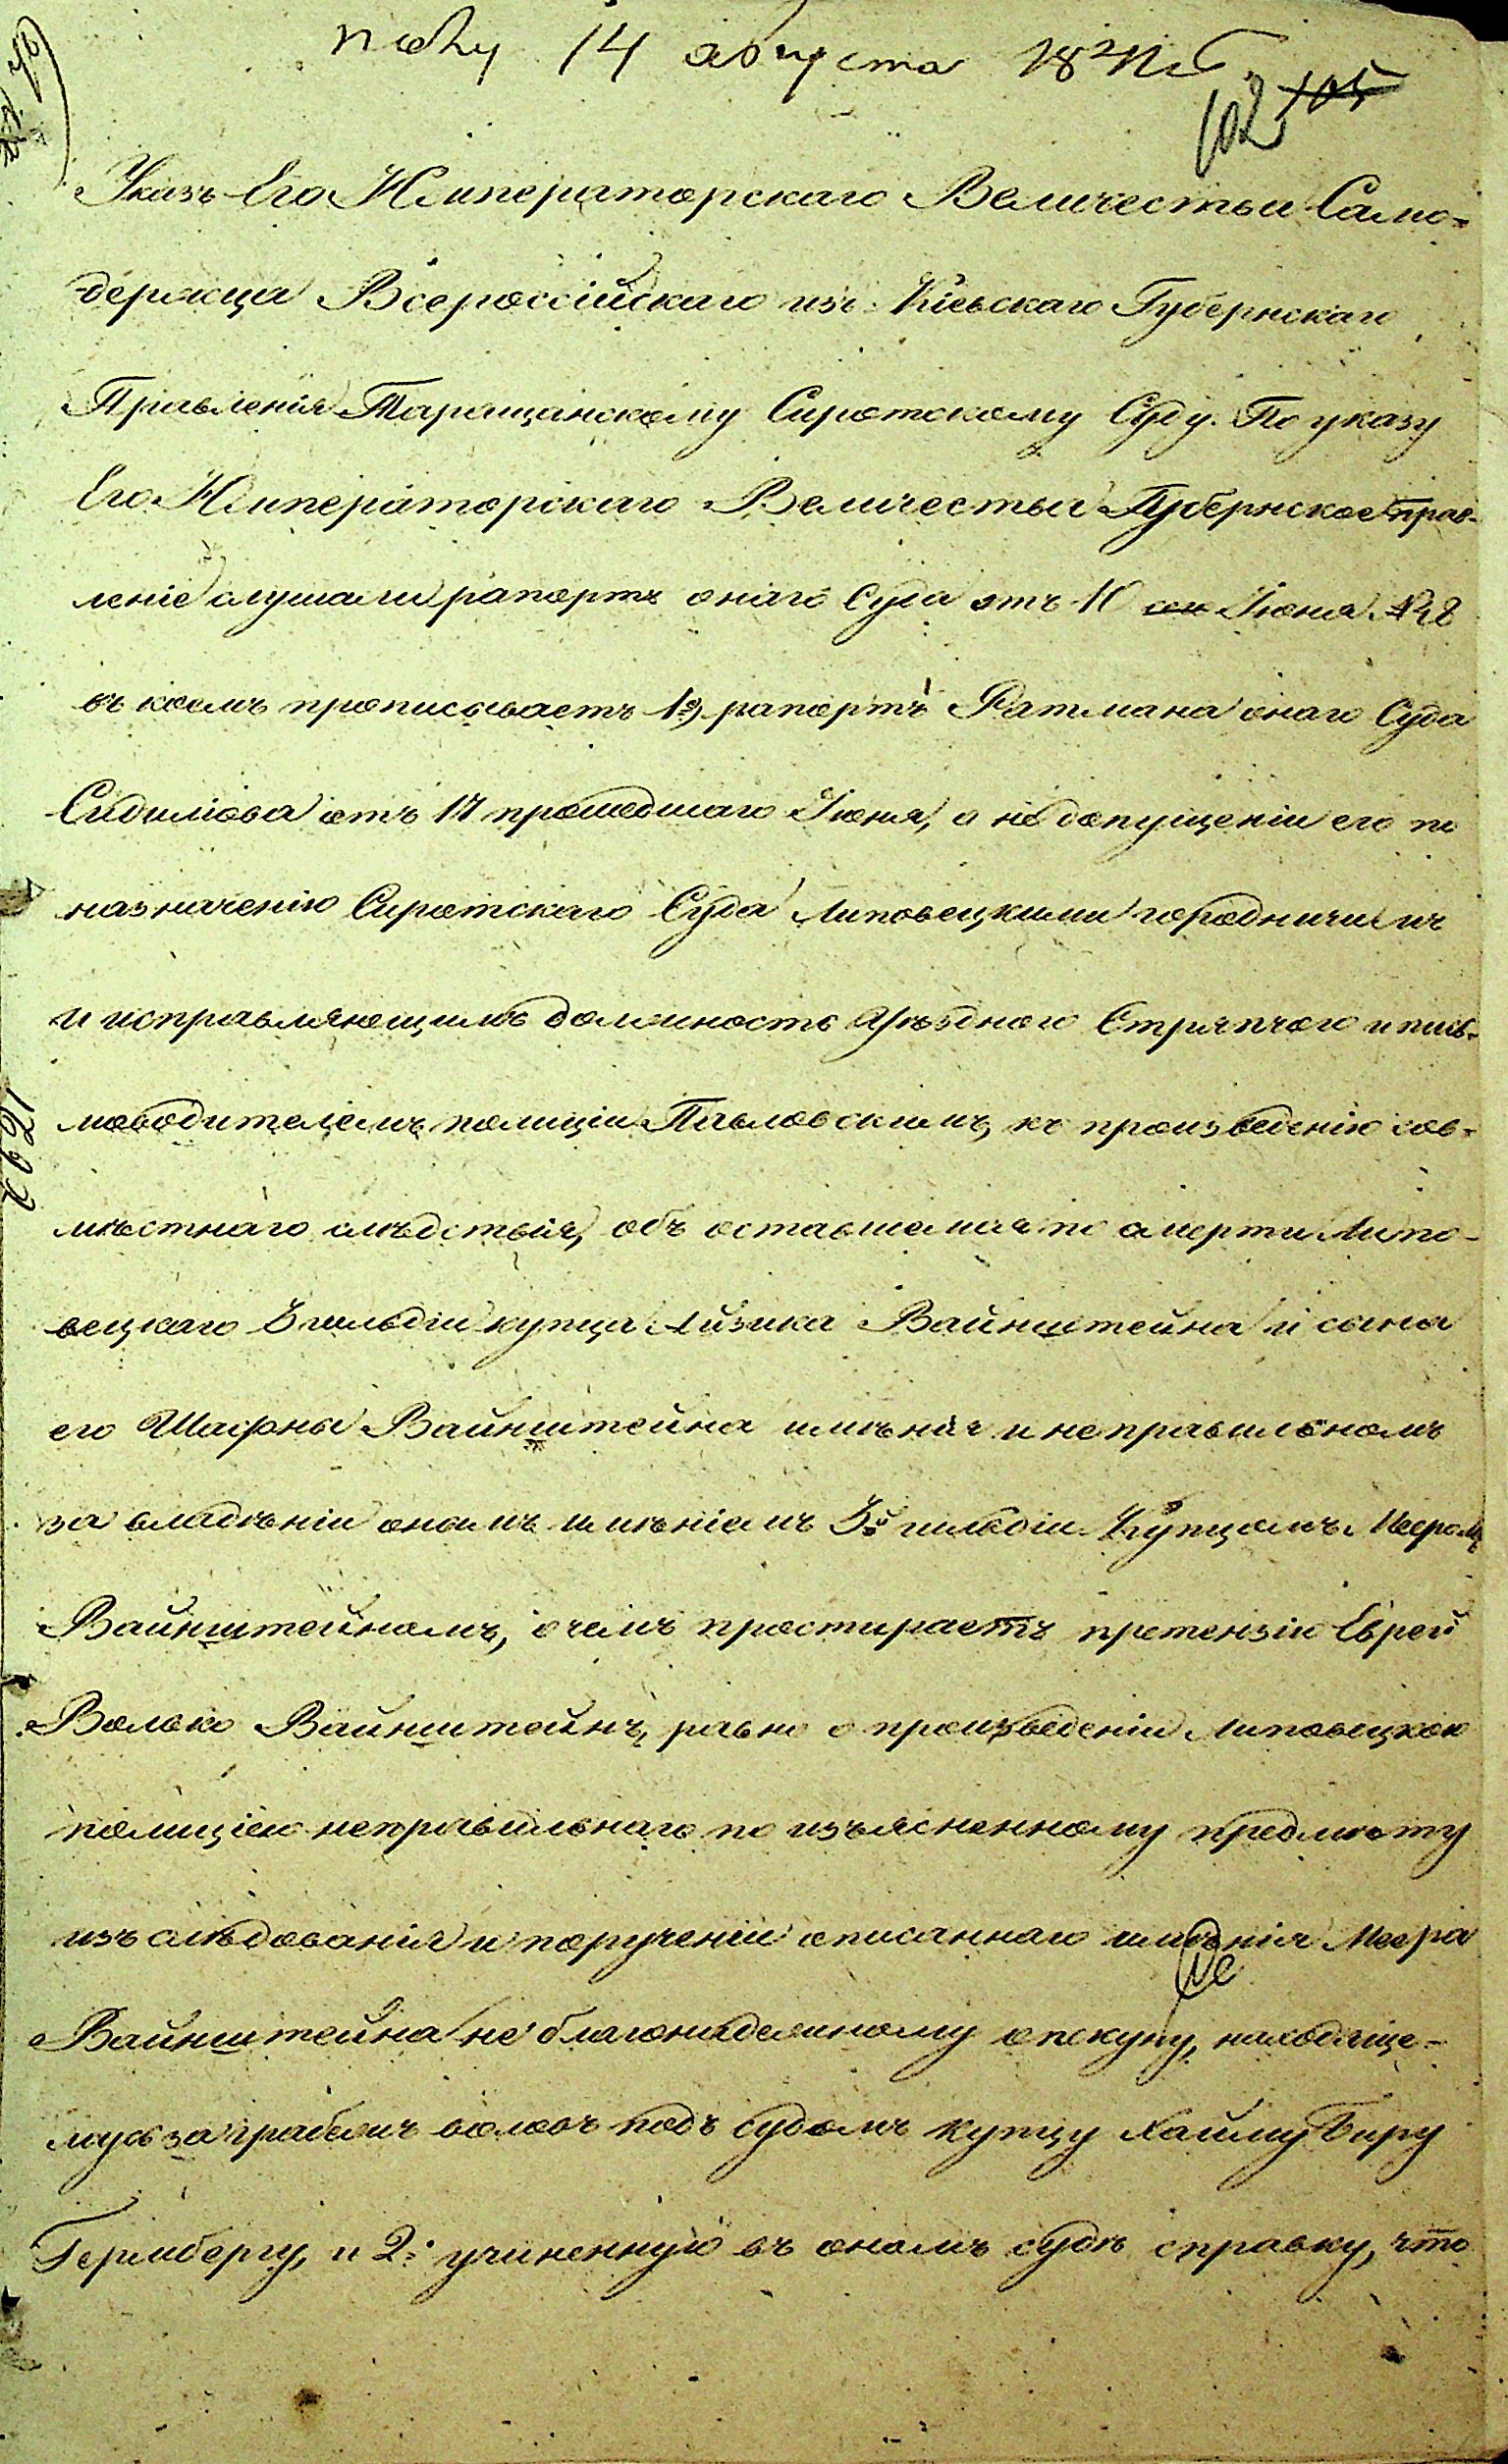 14 августа
102 105
Указъ Его Императорскаго Величества Само-
держца Всероссійскаго изъ Кіевскаго Губернскаго
Правленія Таращанскому Сиротскому Суду. По указу
Его Императорскаго Величества Губернское прав-
леніе слушали рапортъ онаго Суда отъ Июня №
въ коемъ прописываетъ 1е) рапортъ Ратмана онаго Суда
отъ 17 прошедшаго Июня, о не допущеніи его по
назначенію Сиротскаго Суда Липовецкими городничимъ
и исправляющимъ должность Уѣзднаго Стряпчаго и пись-
моводителемъ полиціи Павловскимъ, къ произведенію сов-
мѣстнаго слѣдствія, объ оставшемся по смерти Липо-
вецкаго 3 гильдіи купца Айзика Вайнштейна и сына
его Вайнштейна имѣнія и неправильномъ
за владѣніи онымъ имѣніемъ 3й гильдіи Купцомъ Мееромъ
Вайнштейномъ, о чемъ простираетъ претензію Еврей
Волько Вайнштейнъ, равно о произведеніи Липовецкою
полиціею неправильнаго по изъясненному предмѣту
изъ слѣдованія и порученіи описаннаго имѣнія Меера
Вайнштейна не благонадежному опекуну, находяще-
муся за грабежъ воловъ подъ судомъ купцу Хаиму Беру
и 2е учиненную въ ономъ судѣ справку, что